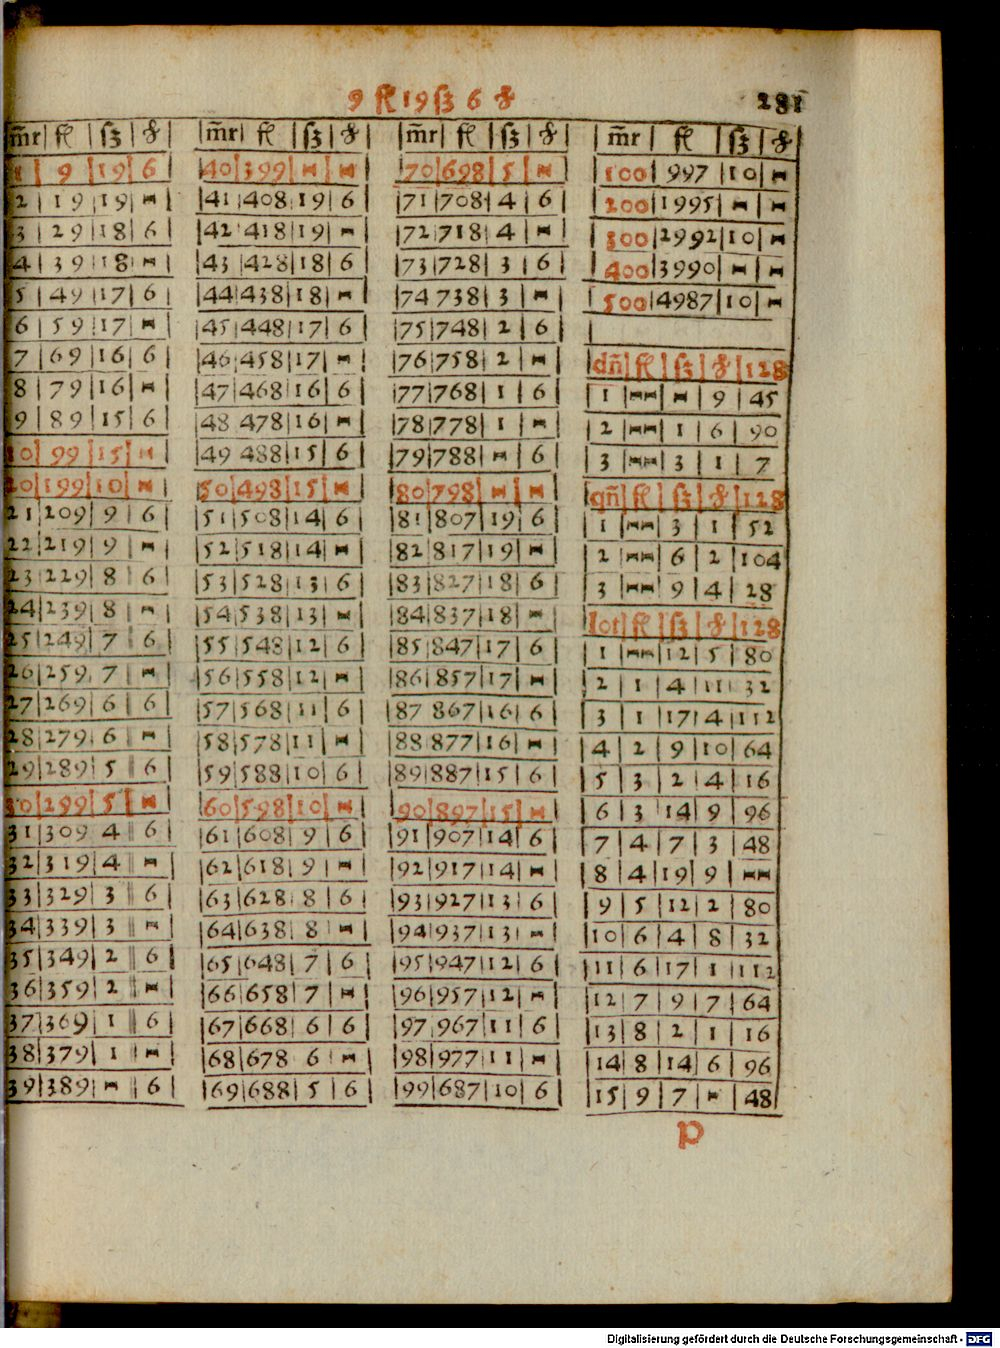 9 fl 19 ſʒ 6 ₰
281
m̃r | fl | ſʒ | ₰
1 | 9 | 19 | 6
2 | 19 | 19 | ⋈
3 | 29 | 18 | 6
4 | 39 | 18 | ⋈
5 | 49 | 17 | 6
6 | 59 | 17 | ⋈
7 | 69 | 16 | 6
8 | 79 | 16 | ⋈
9 | 89 | 15 | 6
10 | 99 | 15 | ⋈
20 | 199 | 10 | ⋈
21 | 209 | 9 | 6
22 | 219 | 9 | ⋈
23 | 229 | 8 | 6
24 | 239 | 8 | ⋈
25 | 249 | 7 | 6
26 | 259 | 7 | ⋈
27 | 269 | 6 | 6
28 | 279 | 6 | ⋈
29 | 289 | 5 | 6
30 | 299 | 5 | ⋈
31 | 309 | 4 | 6
32 | 319 | 4 | ⋈
33 | 329 | 3 | 6
34 | 339 | 3 | ⋈
35 | 349 | 2 | 6
36 | 359 | 2 | ⋈
37 | 369 | 1 | 6
38 | 379 | 1 | ⋈
39 | 389 | ⋈ | 6
m̃r | fl | ſʒ | ₰
40 | 399 | ⋈ | ⋈
41 | 408 | 19 | 6
42 | 418 | 19 | ⋈
43 | 428 | 18 | 6
44 | 438 | 18 | ⋈
45 | 448 | 17 | 6
46 | 458 | 17 | ⋈
47 | 468 | 16 | 6
48 | 478 | 16 | ⋈
49 | 488 | 15 | 6
50 | 498 | 15 | ⋈
51 | 508 | 14 | 6
52 | 518 | 14 | ⋈
53 | 528 | 13 | 6
54 | 538 | 13 | ⋈
55 | 548 | 12 | 6
56 | 558 | 12 | ⋈
57 | 568 | 11 | 6
58 | 578 | 11 | ⋈
59 | 588 | 10 | 6
60 | 598 | 10 | ⋈
61 | 608 | 9 | 6
62 | 618 | 9 | ⋈
63 | 628 | 8 | 6
64 | 638 | 8 | ⋈
65 | 648 | 7 | 6
66 | 658 | 7 | ⋈
67 | 668 | 6 | 6
68 | 678 | 6 | ⋈
69 | 688 | 5 | 6
m̃r | fl | ſʒ | ₰
70 | 698 | 5 | ⋈
71 | 708 | 4 | 6
72 | 718 | 4 | ⋈
73 | 728 | 3 | 6
74 | 738 | 3 | ⋈
75 | 748 | 2 | 6
76 | 758 | 2 | ⋈
77 | 768 | 1 | 6
78 | 778 | 1 | ⋈
79 | 788 | ⋈ | 6
80 | 798 | ⋈ | ⋈
81 | 807 | 19 | 6
82 | 817 | 19 | ⋈
83 | 827 | 18 | 6
84 | 837 | 18 | ⋈
85 | 847 | 17 | 6
86 | 857 | 17 | ⋈
87 | 867 | 16 | 6
88 | 877 | 16 | ⋈
89 | 887 | 15 | 6
90 | 897 | 15 | ⋈
91 | 907 | 14 | 6
92 | 917 | 14 | ⋈
93 | 927 | 13 | 6
94 | 937 | 13 | ⋈
95 | 947 | 12 | 6
96 | 957 | 12 | ⋈
97 | 967 | 11 | 6
98 | 977 | 11 | ⋈
99 | 687 | 10 | 6
m̃r | fl | ſʒ | ₰
100 | 997 | 10 | ⋈
200 | 1995 | ⋈ | ⋈
300 | 2992 | 10 | ⋈
400 | 3990 | ⋈ | ⋈
500 | 4987 | 10 | ⋈
dñ | fl | ſʒ | ₰ | 128
1 | ⋈⋈ | ⋈ | 9 | 45
2 | ⋈⋈ | 1 | 6 | 90
3 | ⋈⋈ | 3 | 1 | 7
qñ | fl | ſʒ | ₰ | 128
1 | ⋈⋈ | 3 | 1 | 52
2 | ⋈⋈ | 6 | 2 | 104
3 | ⋈⋈ | 9 | 4 | 28
lot | fl | ſʒ | ₰ | 128
1 | ⋈⋈ | 12 | 5 | 80
2 | 1 | 4 | 11 | 32
3 | 1 | 17 | 4 | 112
4 | 2 | 9 | 10 | 64
5 | 3 | 2 | 4 | 16
6 | 3 | 14 | 9 | 96
7 | 4 | 7 | 3 | 48
8 | 4 | 19 | 9 | ⋈⋈
9 | 5 | 12 | 2 | 80
10 | 6 | 4 | 8 | 32
11 | 6 | 17 | 1 | 112
12 | 7 | 9 | 7 | 64
13 | 8 | 2 | 1 | 16
14 | 8 | 14 | 6 | 96
15 | 9 | 7 | ⋈ | 48
p
Digitalisierung gefördert durch die Deutsche Forschungsgemeinschaft - DFG